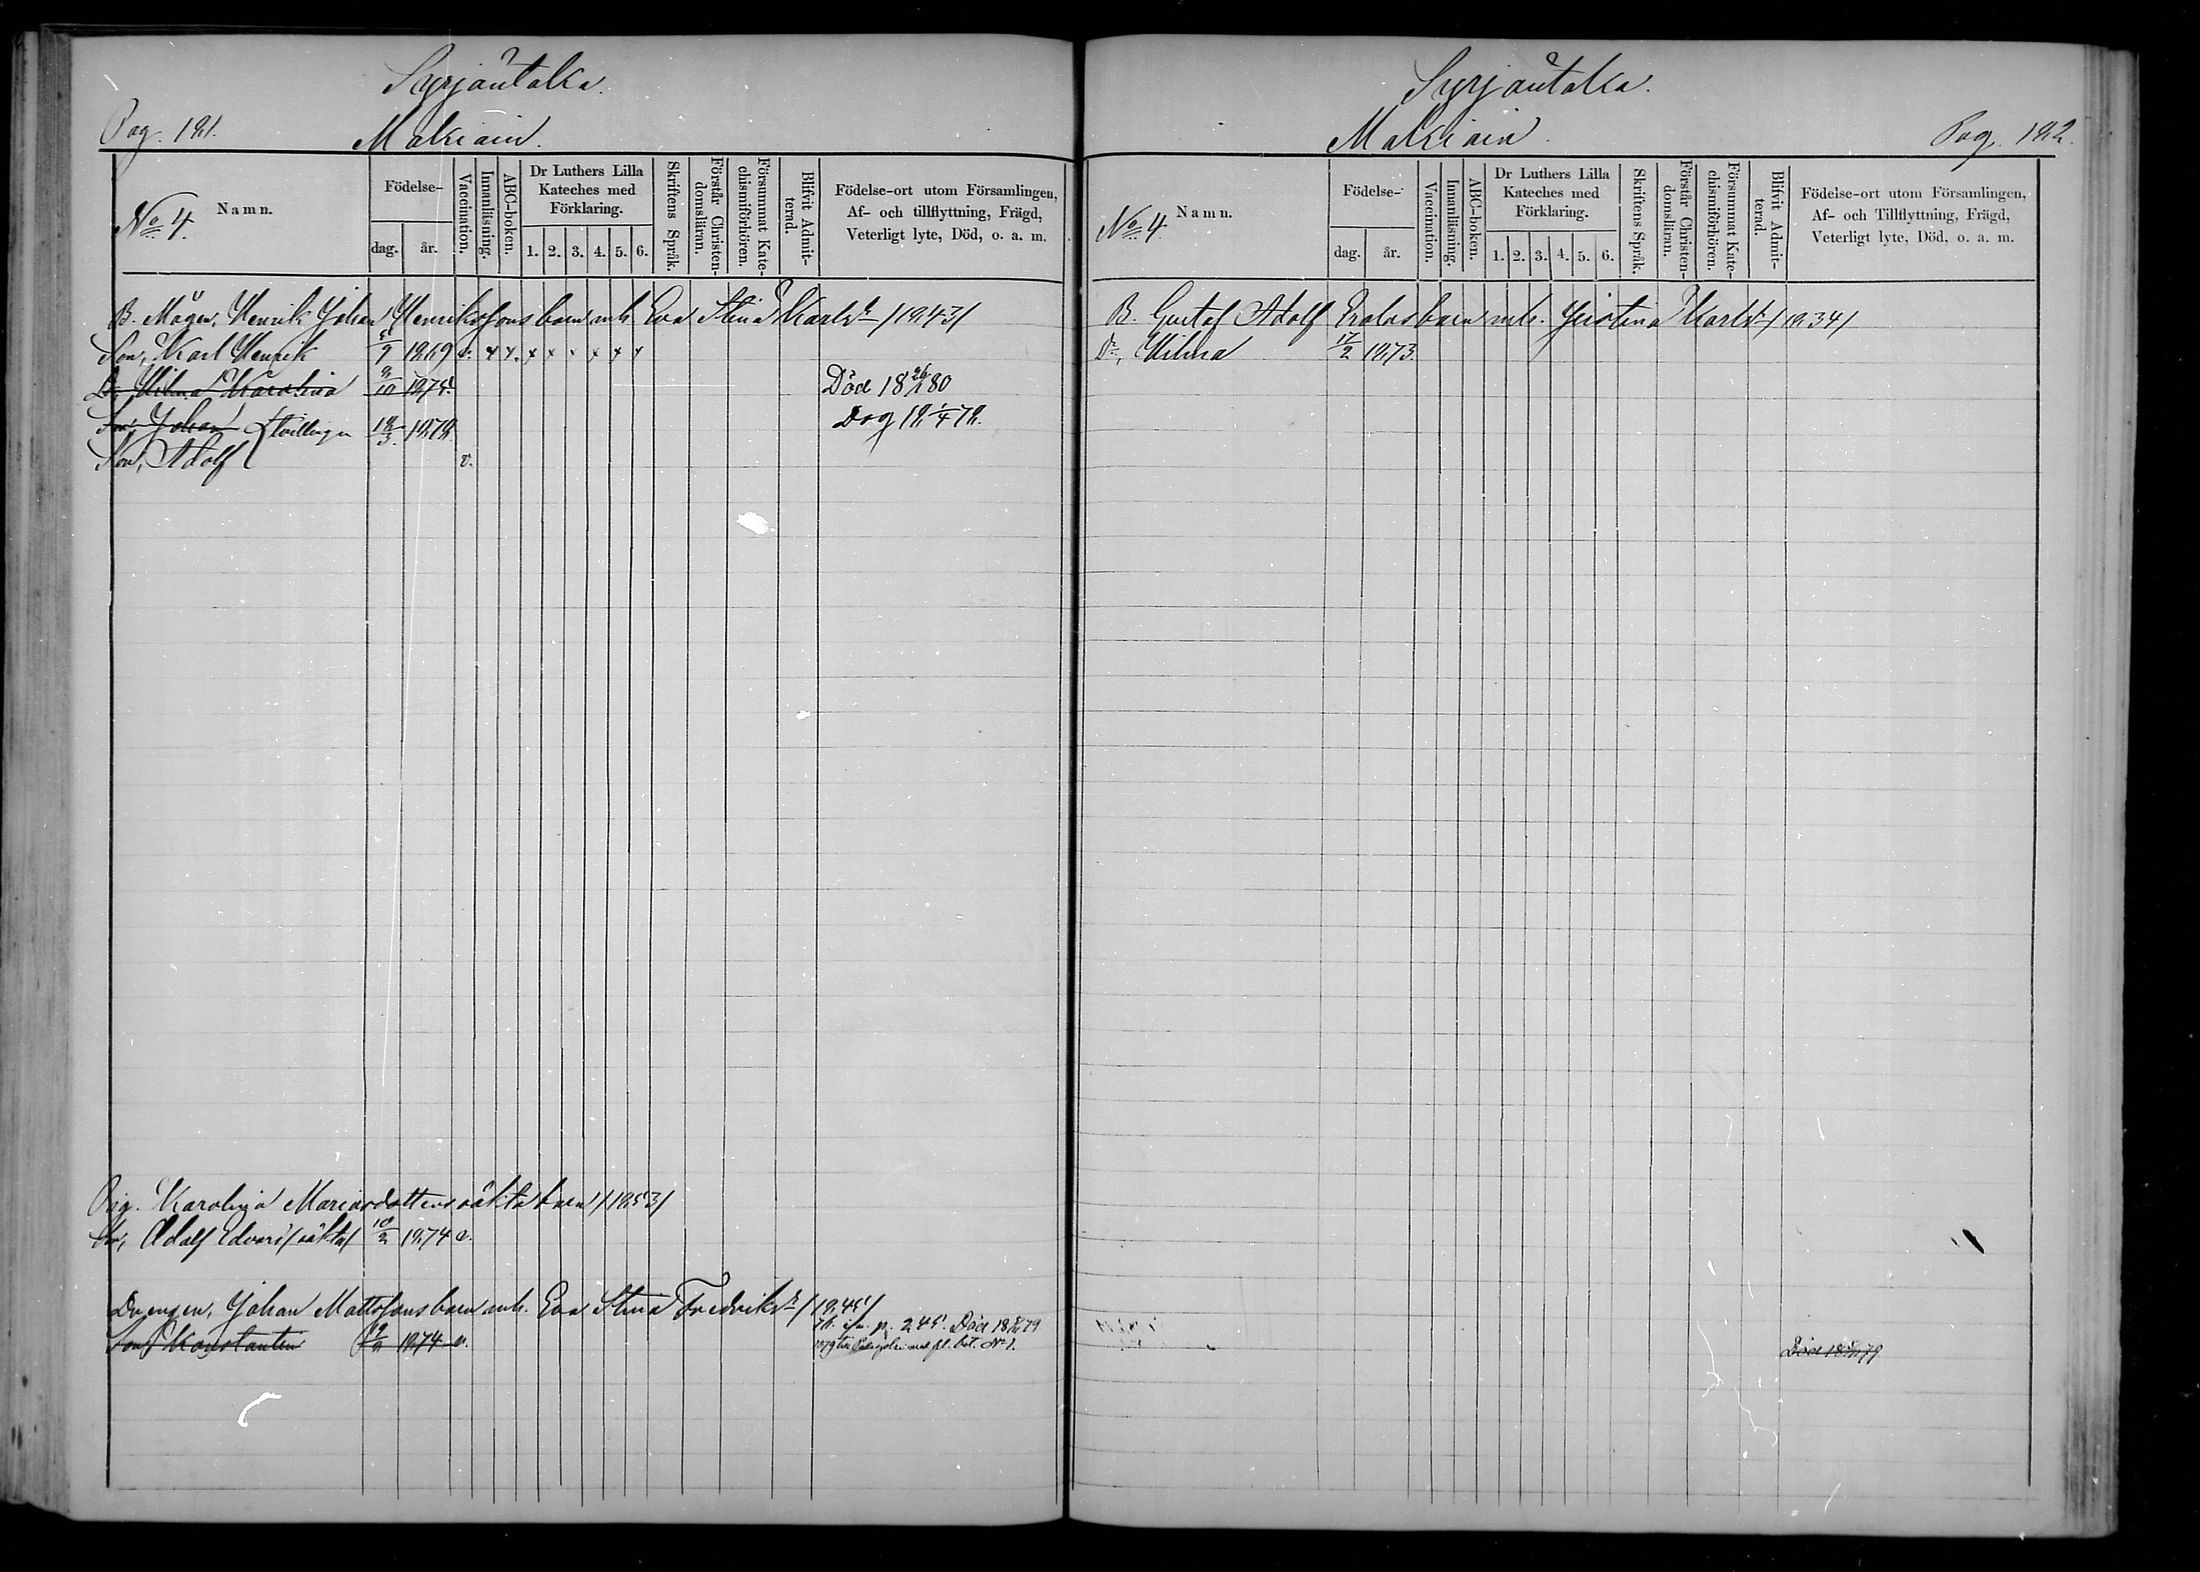 Syrjäntaka.
Pag. 181.
Makiain.
No 4.
Namn.
Födelse-
dag.
år.
Vaccination.
Innanläsning.
ABC-boken.
Dr Luthers Lilla
Kateches med
Förklaring.
1. 2. 3. 4. 5. 6.
Skriftens Språk.
Förstår Christen-
domsläran.
Försummat Kate-
chismiförhören.
Blifvit Admit-
terad.
Födelse-ort utom Församlingen,
Af- och tillflyttning, Frägd,
Veterligt lyte, Död, o. a. m.
B. Mågen, Henrik Johan Henrikssons barn mh. Eva Stina Karlsdr /1843/
Son, Karl Henrik 5/9 1869 v. x x. x x x x x x
Dr, Wilma Karolina 3/10 1875. Död 18 26/1 80
Son, Johan { tvillingar 18/3. 1878 Dog 18 1/4 78.
Son, Adolf v.
Pig. Karolina Mariasdotters oäkta barn /1853/
Son, Adolf Edvard /oäkta/ 10/2 1874 v.
Drengen, Johan Mattssons barn mh. Eva Stina Fredriksdr /1845/
p. 245. Död 79
Son Konstantin 1874 v. 1879 till med fl. bet. No 1.
Syrjäntaka.
Makiain.
Pag. 182.
No 4.
Namn.
Födelse-
dag.
år.
Vaccination.
Innanläsning.
ABC-boken.
Dr Luthers Lilla
Kateches med
Förklaring.
1. 2. 3. 4. 5. 6.
Skriftens Språk.
Förstår Christen-
domsläran.
Försummat Kate-
chismiförhören.
Blifvit Admit-
terad.
Födelse-ort utom Församlingen,
Af- och Tillflyttning, Frägd,
Veterligt lyte, Död, o. a. m.
B. Gustaf Adolf barn mh. Kristina Karlsdr /1834/
Dr, Wilma 17/2 1873.
Död 79